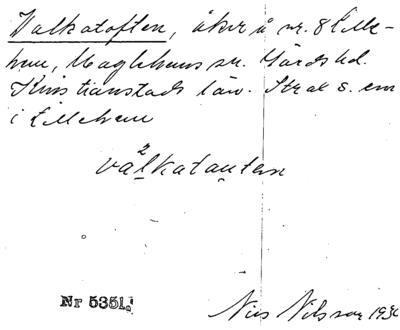 Valkatoften, åker å nr. 8 Lille-
hem, Maglehems sn. Gärds hd.
Kristianstads län. Strax s. om
i Lillehem
valkatauten
Nr 5351.
Nils Nilsson 193